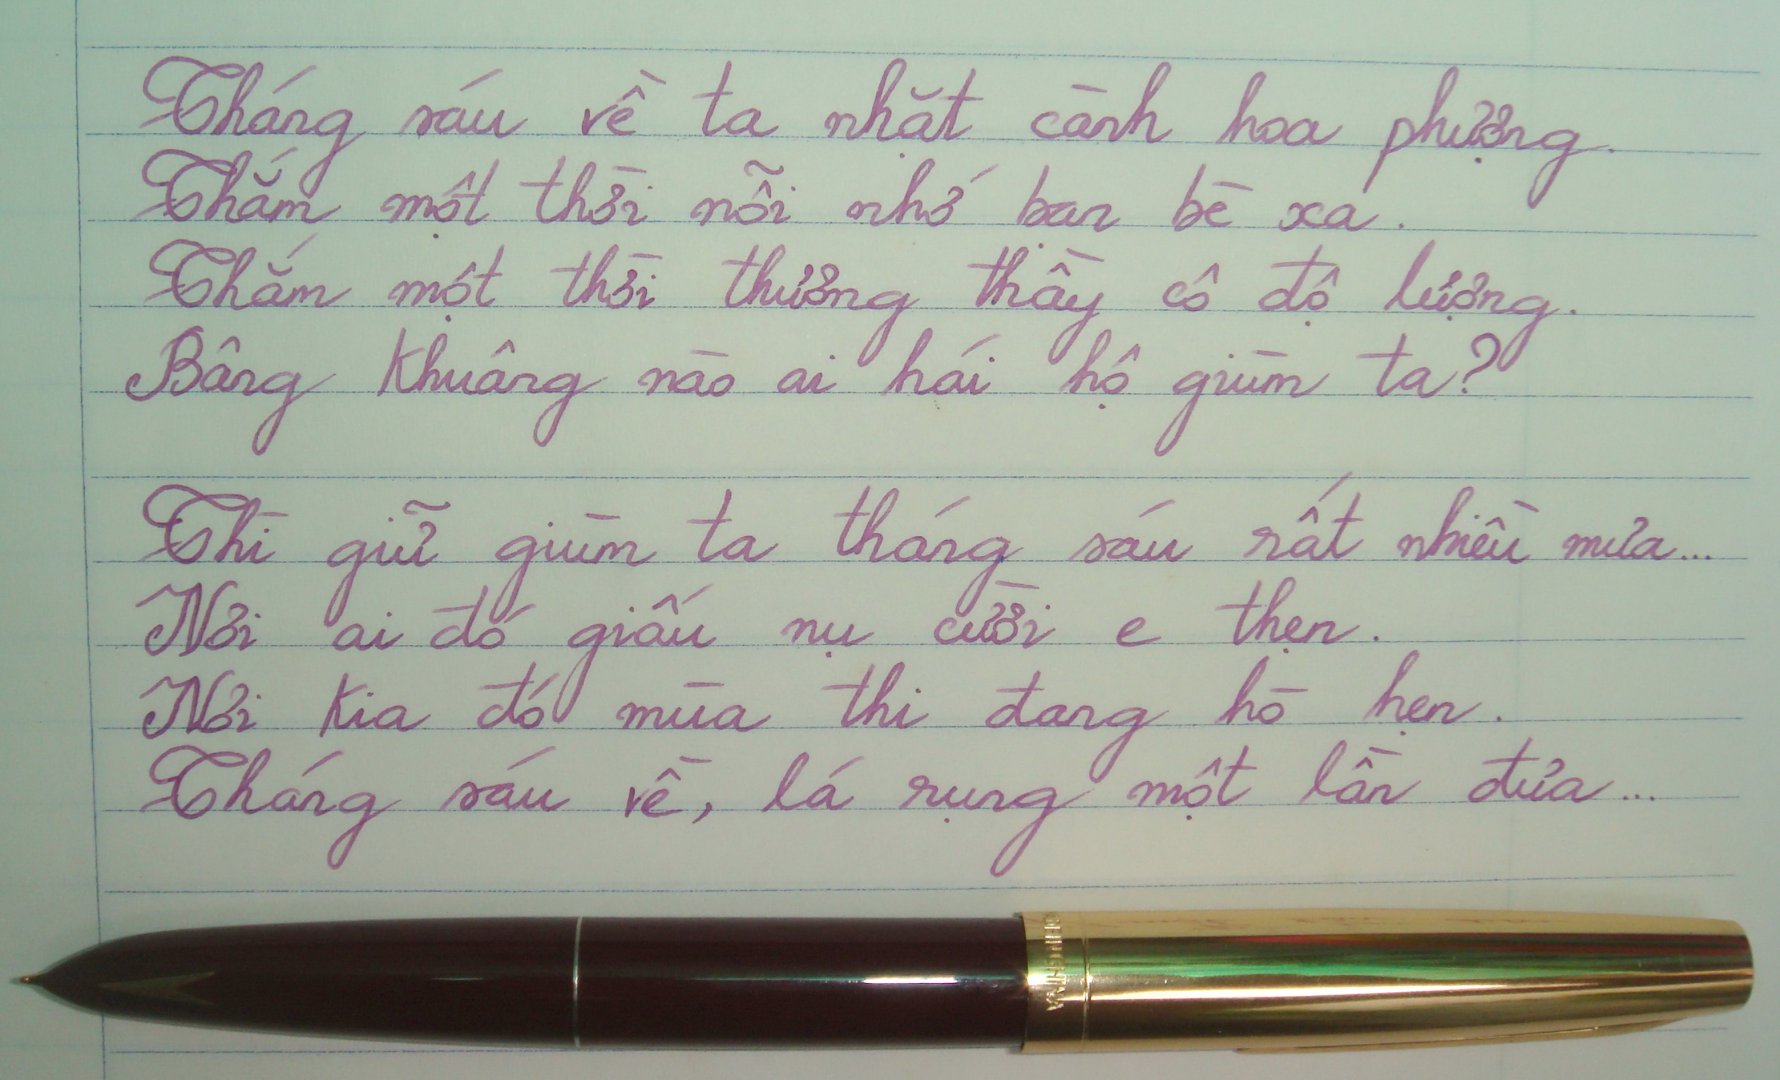 Tháng sáu về ta nhặt cành hoa phượng.
Thắm một thời nỗi nhớ bạn bè xa.
Thắm một thời thương thầy cô độ lượng.
Bâng khuâng nào ai hái hộ giùm ta?
Thì giữ giùm ta tháng sáu rất nhiều mưa...
Nơi ai đó giấu nụ cười e thẹn.
Nơi kia đó mùa thi đang hò hẹn.
Tháng sáu về, lá rụng một lần đưa...